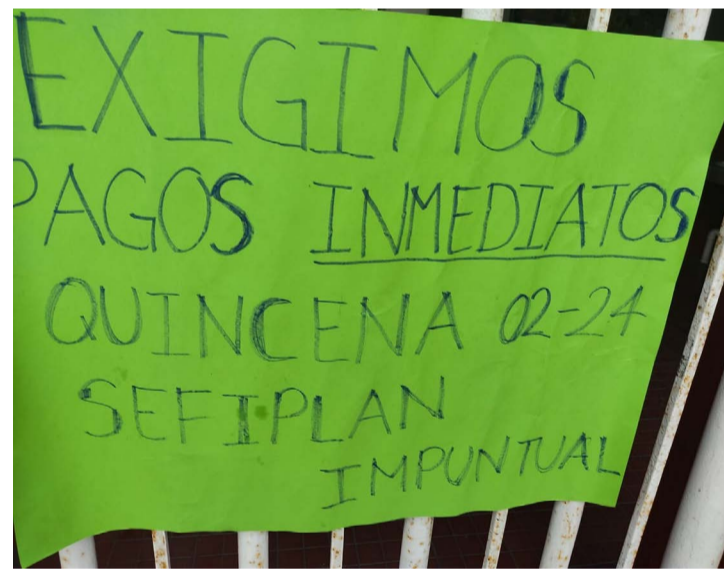 EXIGIMOS
PAGOS INMEDIATOS
QUINCENA 02-24
SEFIPLAN
IMPUNTUAL